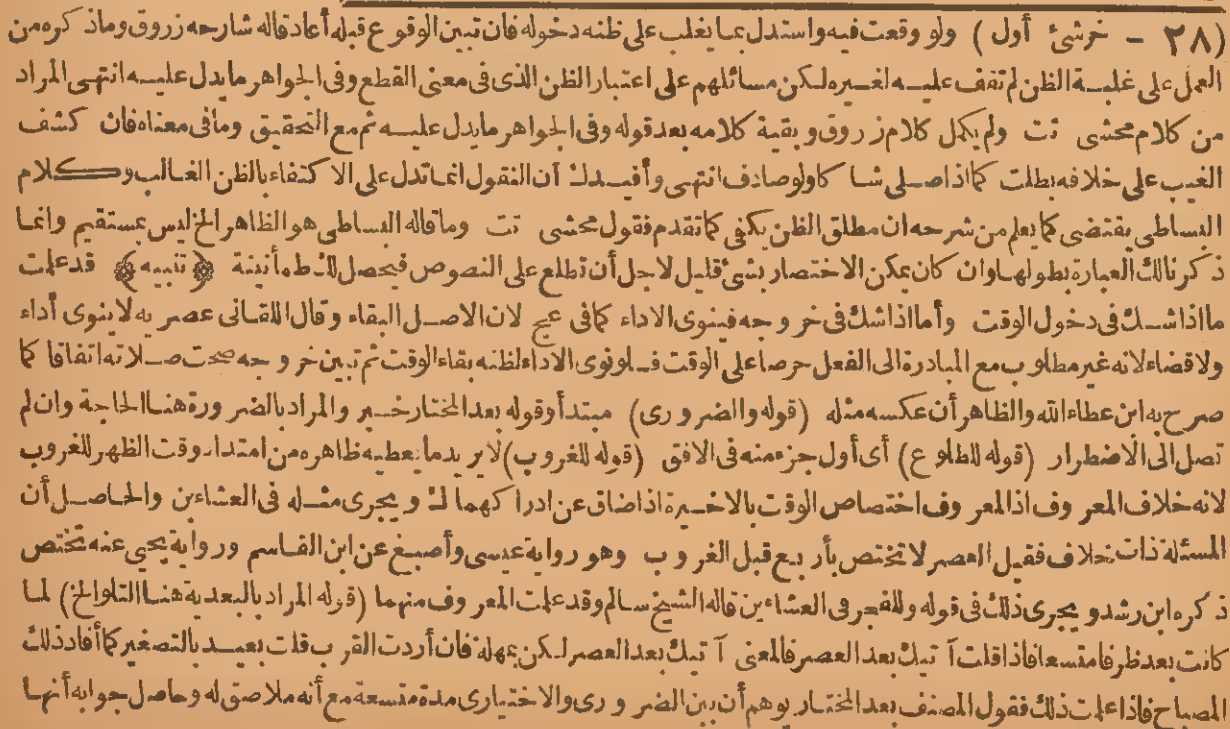 (٢٨ - خرشئ أول) ولو وقعت فيه واستدل بما يغلب على ظنه دخوله فان تبين الوقوع قبله أعاد قاله شارحه زروق وماذكره من
العمل على غلبة الظن لم تقف عليه لغيره لكن مسائلهم على اعتبار الظن الذى فى معنى القطع وفى الجواهر ما يدل عليه انتهى المراد
من كلام محشى تت ولم يكمل كلام زروق وبقية كلامه بعد قوله وفى الجواهر ما يدل عليه ثم مع التحقيق وما فى معناه فان كشف
الغيب على خلافه بطلت كما اذا صلى شاكا ولو صادف انتهى وأفيدك أن النقول انما تدل على الاكتفاء بالظن الغالب وكلام
البساطى يقتضى كما يعلم من شرحه ان مطلق الظن يكفى كما تقدم فقول محشى تت وما قاله البساطى هو الظاهر الخ ليس بمستقيم وانما
ذكرنا لك العبارة بطولها وان كان يمكن الاختصار بشئ قليل لاجل أن تطلع على النصوص فيحصل لك طمأنينة ﴿تنبيه﴾ قد علمت
ما اذا شك فى دخول الوقت وأما اذا شك فى خروجه فينوى الاداء كما فى عج لان الاصل البقاء وقال اللقانى عصريه لا ينوى أداء
ولا قضاء لانه غير مطلوب مع المبادرة الى الفعل حرصا على الوقت فلو نوى الاداء لظنه بقاء الوقت ثم تبين خروجه صحت صلاته اتفاقا كما
صرح به ابن عطاء الله والظاهر أن عكسه مثله (قوله والضرورى) مبتدأ وقوله بعد المختار خبر والمراد بالضرورة هنا الحاجة وان لم
تصل الى الاضطرار (قوله للطلوع) أى أول جزء منه فى الافق (قوله للغروب) لا يريد ما يعطيه ظاهره من امتداد وقت الظهر للغروب
لانه خلاف المعروف اذ المعروف اختصاص الوقت بالاخيرة اذا ضاق عن ادراكهما ك ويجرى مثله فى العشاءين والحاصل أن
المسئلة ذات خلاف فقيل العصر لا تختص بأربع قبل الغروب وهو رواية عيسى وأصبغ عن ابن القاسم ورواية يحيى عنه تختص
ذكره ابن رشد ويجرى ذلك فى قوله وللفجر فى العشاءين قاله الشيخ سالم وقد علمت المعروف منهما (قوله المراد بالبعدية هنا التلو الخ) لما
كانت بعد ظرفا متسعا فاذا قلت آتيك بعد العصر فالمعنى آتيك بعد العصر لكن بمهلة فان أردت القرب قلت بعيد بالتصغير كما أفاد ذلك
المصباح فاذا علمت ذلك فقول المصنف بعد المختار يوهم أن بين الضرورى والاختيارى مدة متسعة مع أنه ملاصق له وحاصل جوابه أنها